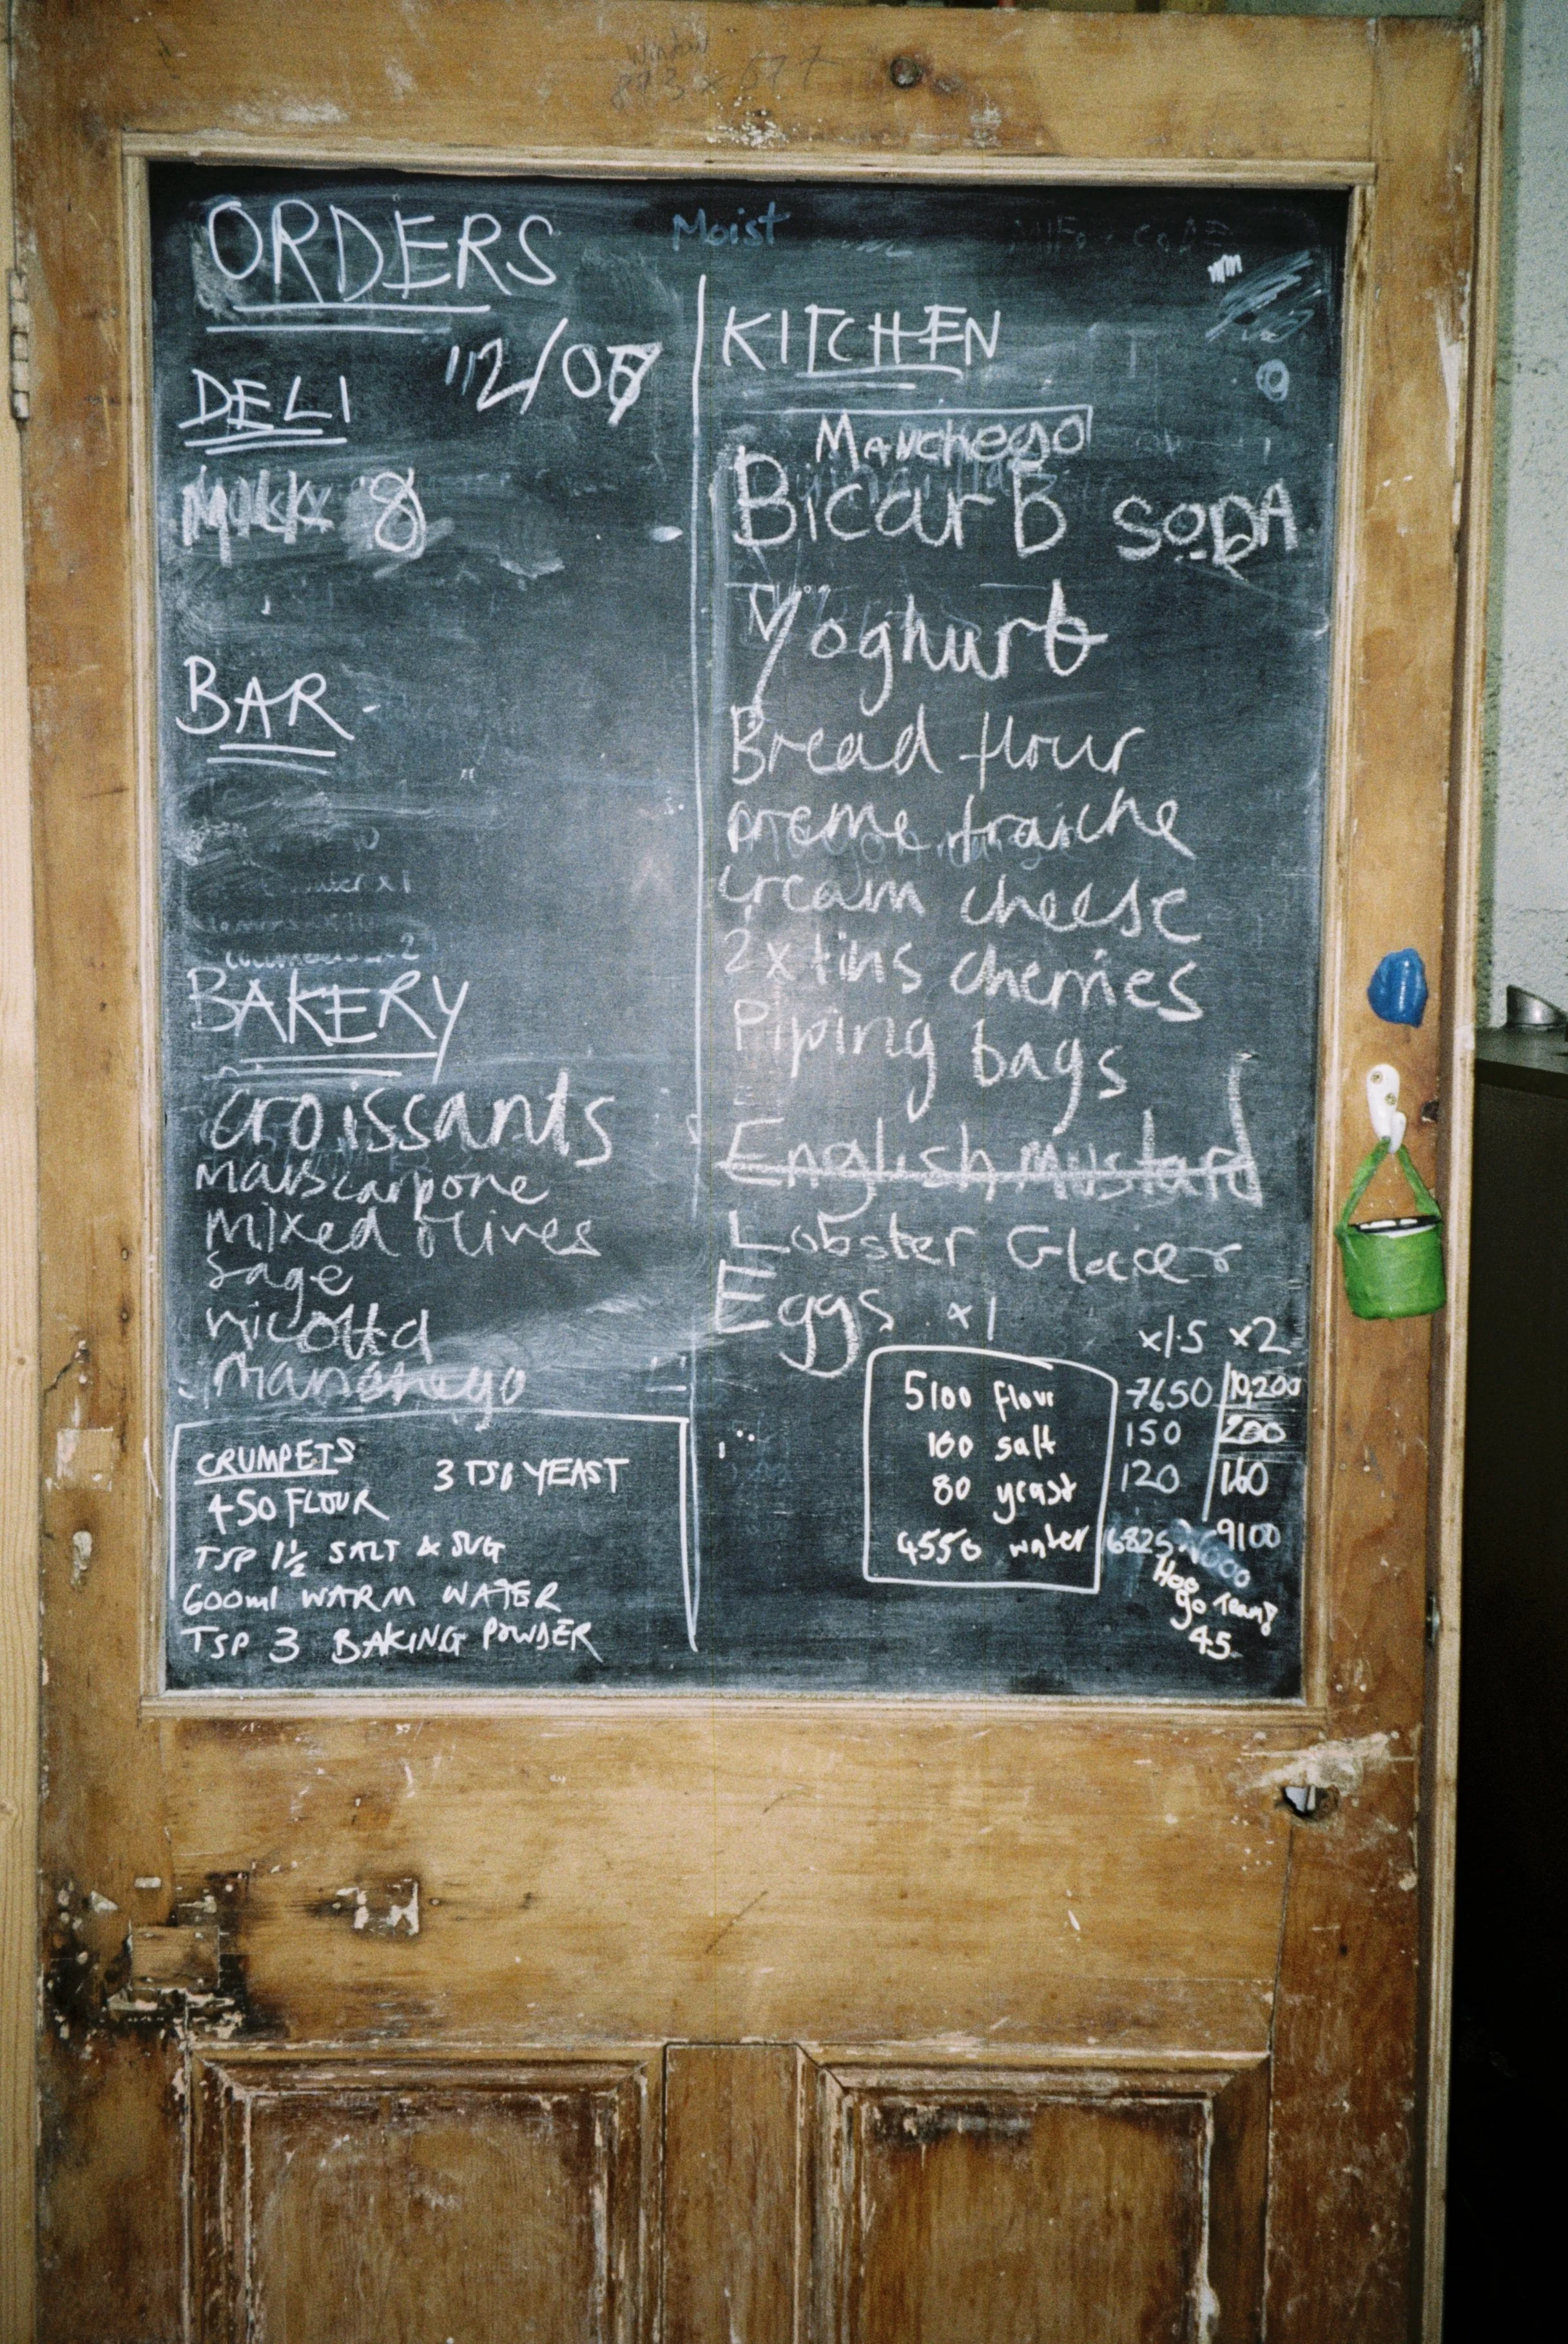 Window
ORDERS
Moist
12/07
DELI
Milk 8
BAR
BAKERY
croissants
Mascarpone
mixed olives
sage
ricotta
manchego
CRUMPETS
3 TSP YEAST
450 FLOUR
TSP 1½ SALT & SUG
600ml WARM WATER
TSP 3 BAKING POWDER
KITCHEN
Manchego
Bicarb SODA
Yoghurt
Bread flour
creme fraiche
cream cheese
2x tins cherries
Piping bags
English Mustard
Lobster
Eggs
x1 x1.5 x2
5100 flour 7650 10,200
100 salt 150 200
80 yeast 120 160
4550 water 6825 9100
go Team
45